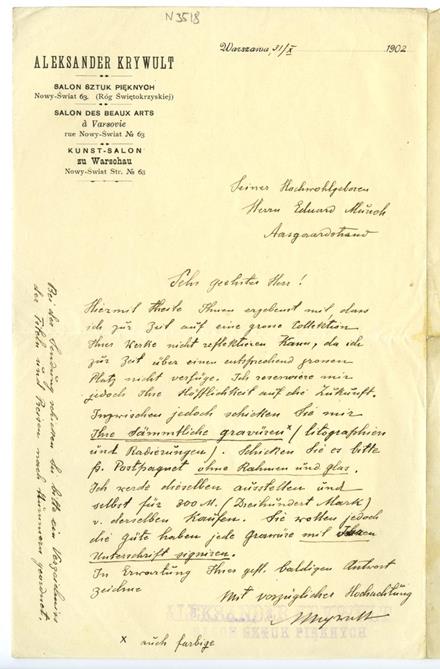 N 3518
ALEKSANDER KRYWULT
SALON SZTUK PIĘKNYCH
Nowy-Świat 63. (Róg Świętokrzyskiej)
SALON DES BEAUX ARTS
à Varsovie
rue Nowy-Świat № 63
KUNST-SALON
zu Warschau
Nowy-Świat Str. № 63
Warszawa, 31/X 1902
Seiner Hochwohlgeboren
Herrn Eduard Munch
Aasgaardstrand
Sehr geehrter Herr!
Hiermit theile Ihnen ergebenst mit, dass
ich zür Zeit auf eine grosse Collektion
Ihrer Werke nicht reflektiren kann, da ich
zür Zeit über einen entsprechend grossen
Platz nicht verfüge. Ich reservire mir
jedoch Ihre Höfflichkeit auf die Zükunft.
Inzwischen jedoch schicken Sie mir
Ihre sämmtliche gravüren x (litographien
und Radierüngen). Schicken Sie es bitte
p. Postpaquet ohne Rahmen und glas.
Ich werde dieselben ausstellen und
selbst für 300 M. (Dreihundert Mark)
v. derselben Kaufen. Sie wollen jedoch
die güte haben jede Gravüre mit Ihren
Unterschrift signiren.
In Erwartung Ihrer gefl. baldigen Antwort
zeichne
Mit vorzüglicher Hochachtung
AKrywult
ALEKSANDER KRYWULT
SALON SZTUK PIĘKNYCH
x auch farbige
Bei der Sendung schicken Sie bitte ein Verzeichniss
der Titeln und Preisen nach Nümmern geordnet.